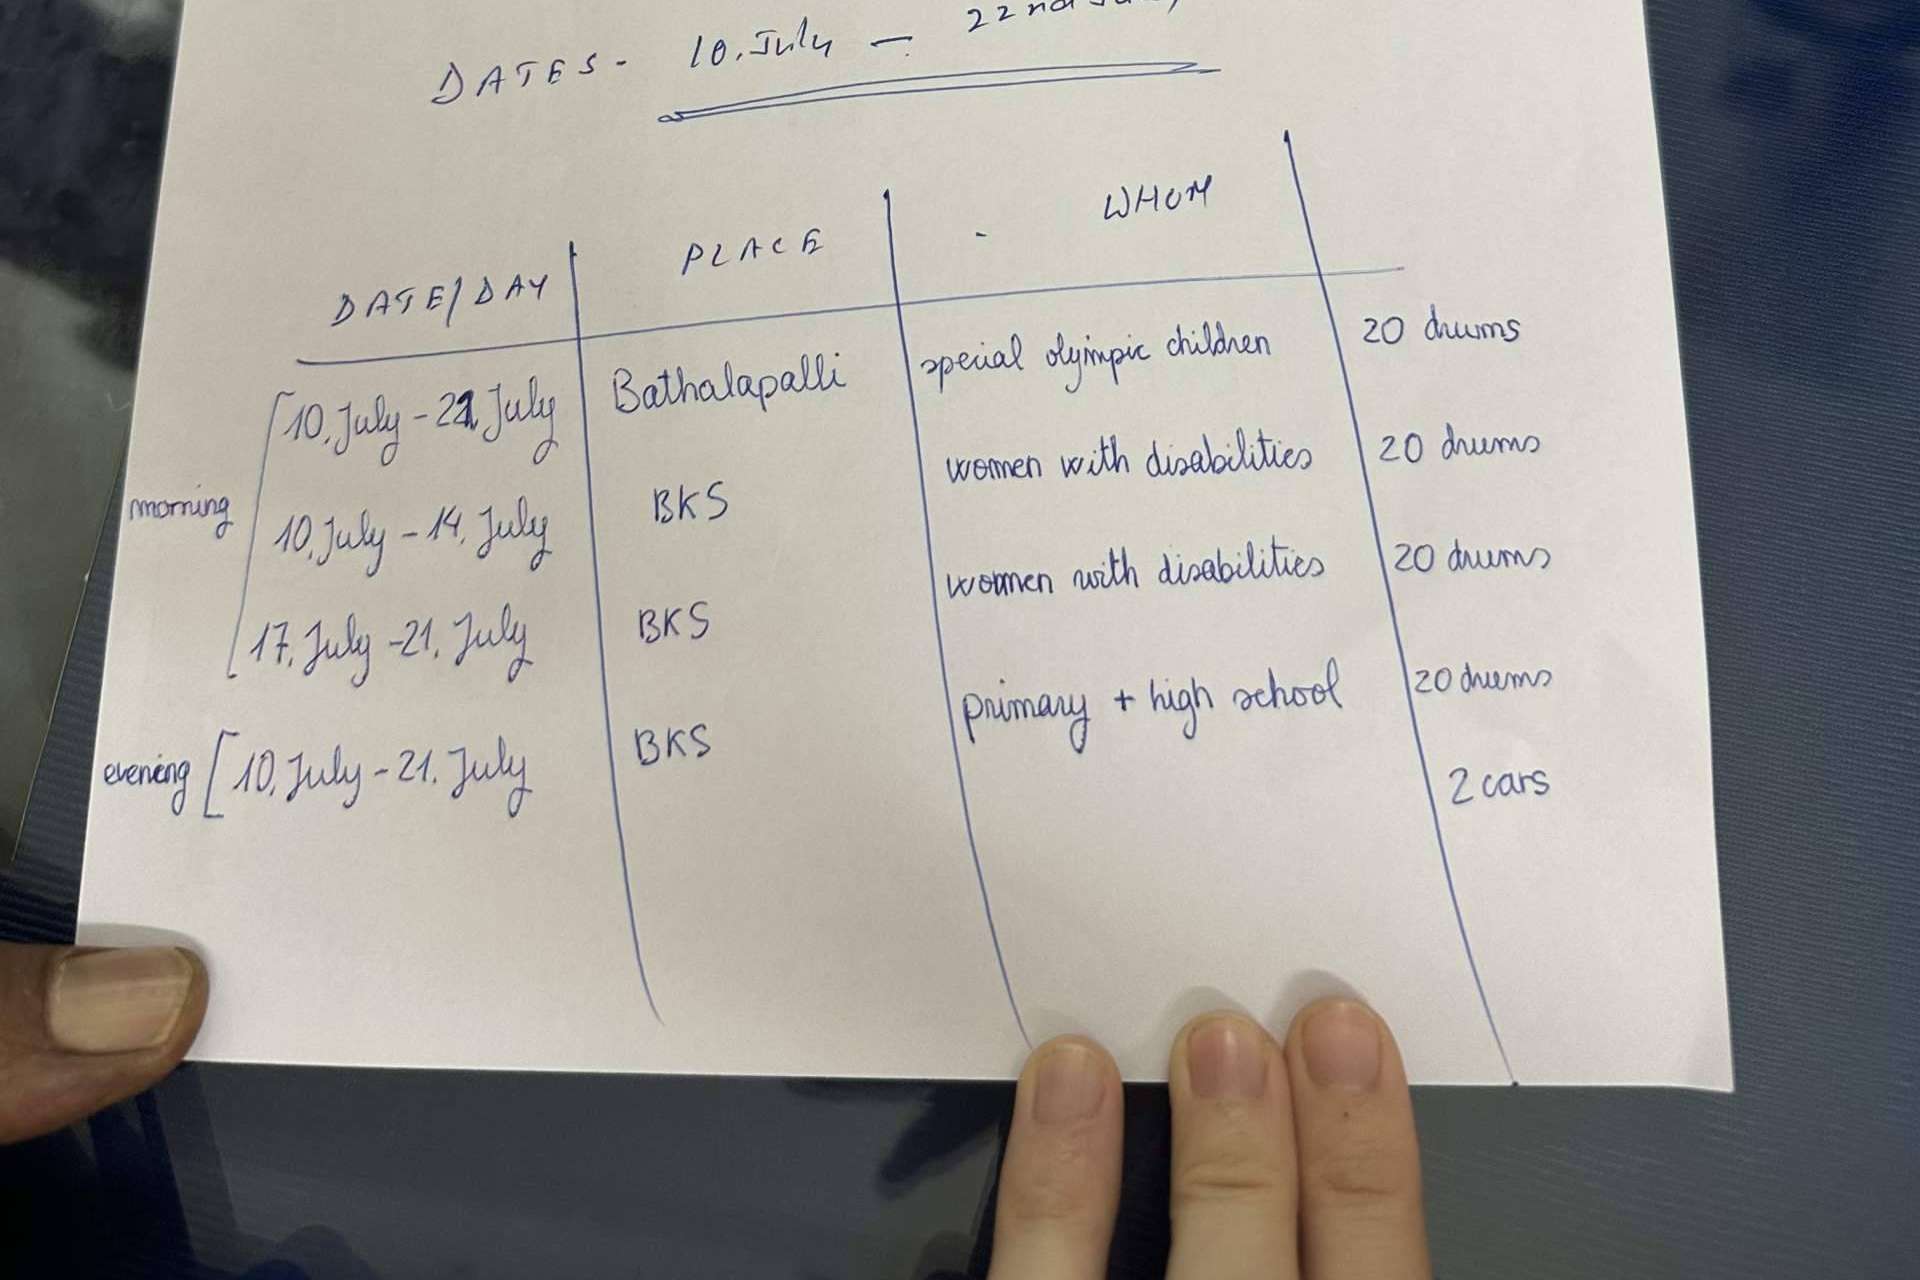 DATES - 10. July - 22nd July
DATE/DAY PLACE - WHOM
morning
10. July - 21. July Bathalapalli special olympic children 20 drums
10. July - 14. July BKS women with disabilities 20 drums
17. July - 21. July BKS women with disabilities 20 drums
evening 10. July - 21. July BKS primary + high school 20 drums
2 cars